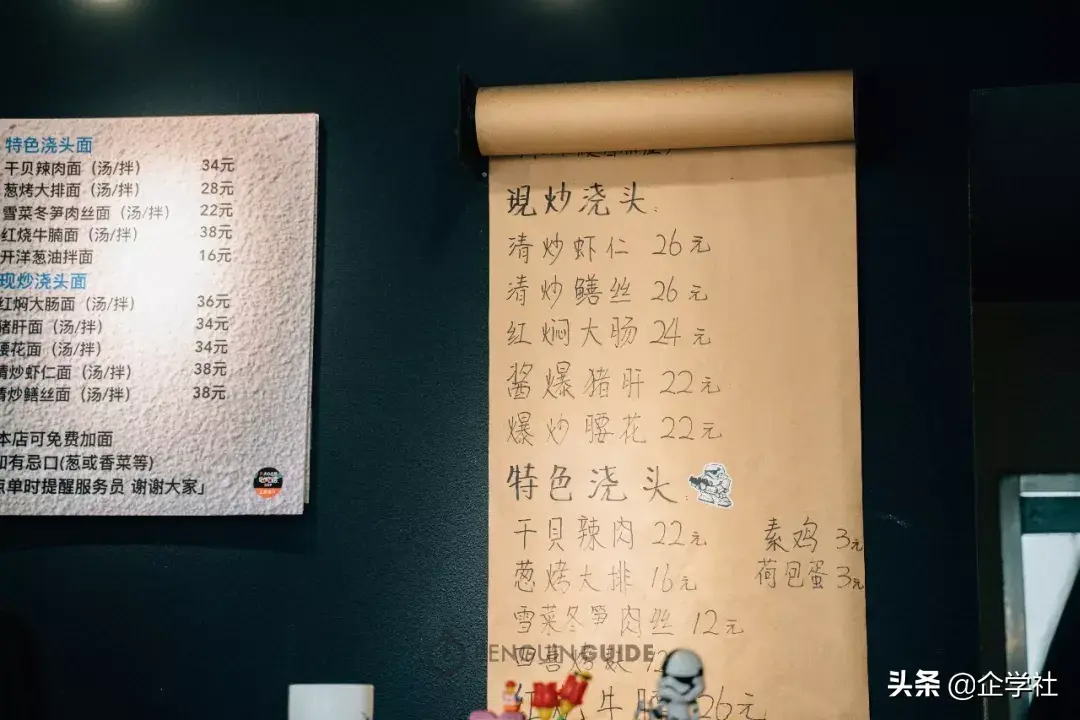 特色浇头面
干贝辣肉面（汤/拌） 34元
葱烤大排面（汤/拌） 28元
雪菜冬笋肉丝面（汤/拌） 22元
红烧牛腩面（汤/拌） 38元
开洋葱油拌面 16元
现炒浇头面
红焖大肠面（汤/拌） 36元
猪肝面（汤/拌） 34元
腰花面（汤/拌） 34元
清炒虾仁面（汤/拌） 38元
清炒鳝丝面（汤/拌） 38元
本店可免费加面
如有忌口(葱或香菜等)
点单时提醒服务员 谢谢大家」
現炒浇头:
清炒虾仁 26元
清炒鳝丝 26元
红焖大肠 24元
酱爆猪肝 22元
爆炒腰花 22元
特色浇头:
干贝辣肉 22元 素鸡 3元
葱烤大排 16元 荷包蛋 3元
雪菜冬笋肉丝 12元
四喜烤麸 12
红烧牛腩 26元
PENGUIN GUIDE
头条 @企学社